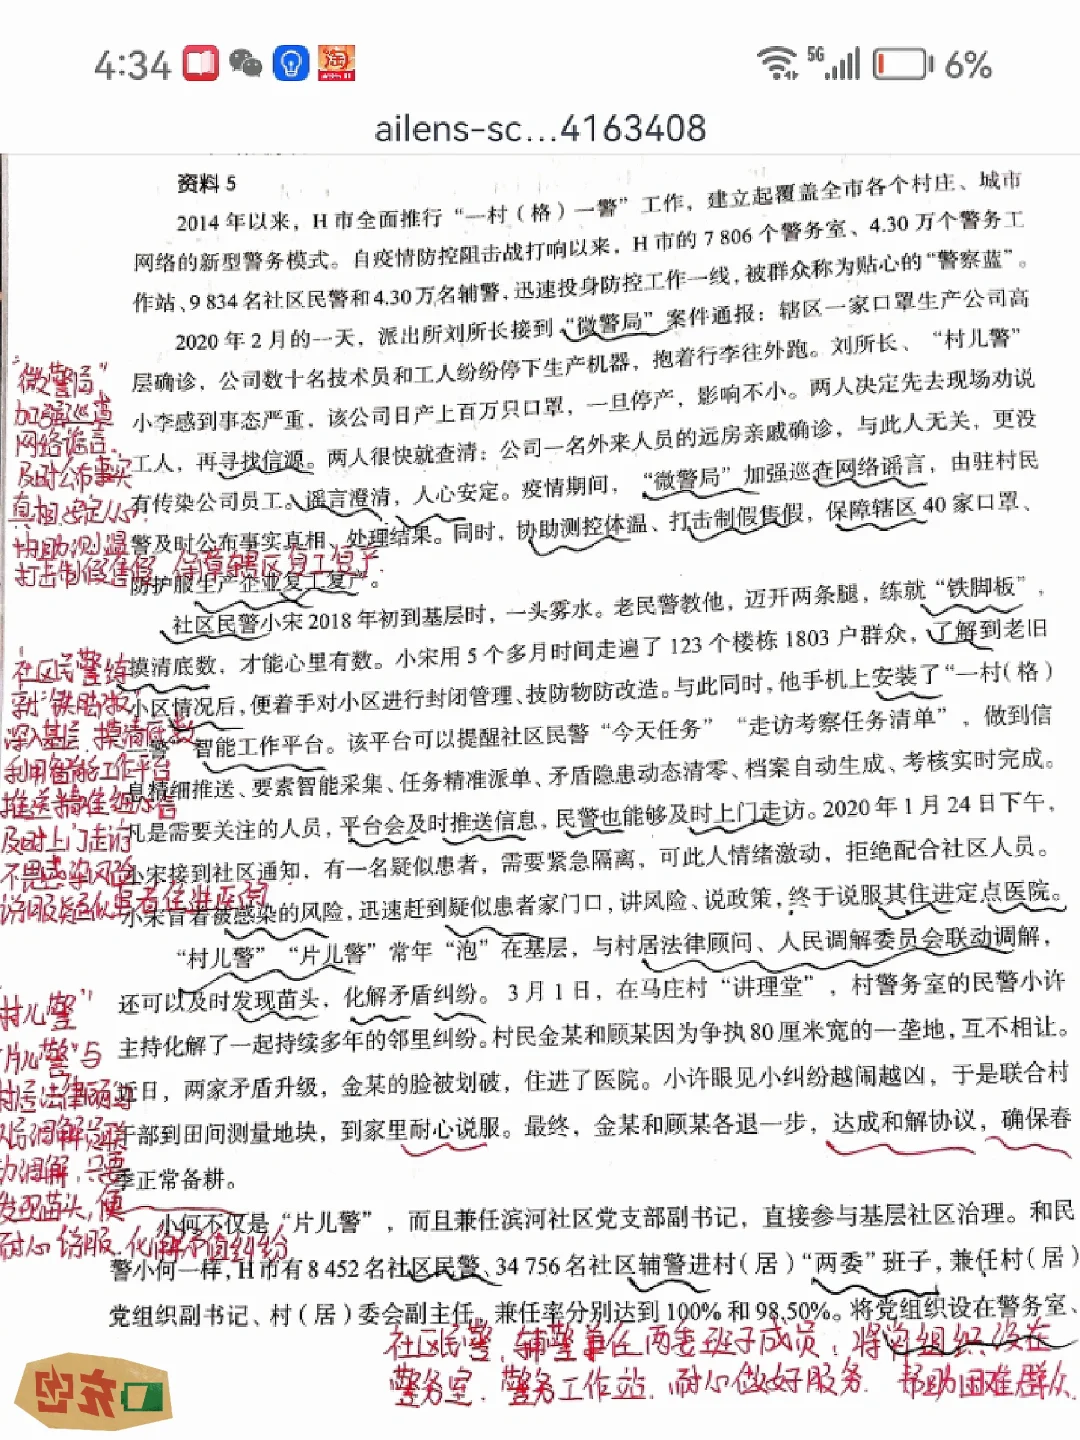 4:34
5G
6%
ailens-sc...4163408
资料 5
2014 年以来，H 市全面推行“一村（格）一警”工作，建立起覆盖全市各个村庄、城市
网络的新型警务模式。自疫情防控阻击战打响以来，H 市的 7 806 个警务室、4.30 万个警务工
作站、9 834 名社区民警和4.30万名辅警，迅速投身防控工作一线，被群众称为贴心的“警察蓝”。
2020 年 2 月的一天，派出所刘所长接到“微警局”案件通报：辖区一家口罩生产公司高
层确诊，公司数十名技术员和工人纷纷停下生产机器，抱着行李往外跑。刘所长、“村儿警”
小李感到事态严重，该公司日产上百万只口罩，一旦停产，影响不小。两人决定先去现场劝说
工人，再寻找信源。两人很快就查清：公司一名外来人员的远房亲戚确诊，与此人无关，更没
有传染公司员工。谣言澄清，人心安定。疫情期间，“微警局”加强巡查网络谣言，由驻村民
警及时公布事实真相、处理结果。同时，协助测控体温、打击制假售假，保障辖区 40 家口罩、
防护服生产企业复工复产。
社区民警小宋 2018 年初到基层时，一头雾水。老民警教他，迈开两条腿，练就“铁脚板”，
摸清底数，才能心里有数。小宋用 5 个多月时间走遍了 123 个楼栋 1803 户群众，了解到老旧
小区情况后，便着手对小区进行封闭管理、技防物防改造。与此同时，他手机上安装了“一村（格）
一警”智能工作平台。该平台可以提醒社区民警“今天任务”“走访考察任务清单”，做到信
息精细推送、要素智能采集、任务精准派单、矛盾隐患动态清零、档案自动生成、考核实时完成。
凡是需要关注的人员，平台会及时推送信息，民警也能够及时上门走访。2020 年 1 月 24 日下午，
小宋接到社区通知，有一名疑似患者，需要紧急隔离，可此人情绪激动，拒绝配合社区人员。
小宋冒着被感染的风险，迅速赶到疑似患者家门口，讲风险、说政策，终于说服其住进定点医院。
“村儿警”“片儿警”常年“泡”在基层，与村居法律顾问、人民调解委员会联动调解，
还可以及时发现苗头，化解矛盾纠纷。3 月 1 日，在马庄村“讲理堂”，村警务室的民警小许
主持化解了一起持续多年的邻里纠纷。村民金某和顾某因为争执 80 厘米宽的一垄地，互不相让。
近日，两家矛盾升级，金某的脸被划破，住进了医院。小许眼见小纠纷越闹越凶，于是联合村
干部到田间测量地块，到家里耐心说服。最终，金某和顾某各退一步，达成和解协议，确保春
季正常备耕。
小何不仅是“片儿警”，而且兼任滨河社区党支部副书记，直接参与基层社区治理。和民
警小何一样，H市有 8 452 名社区民警、34 756 名社区辅警进村（居）“两委”班子，兼任村（居）
党组织副书记、村（居）委会副主任，兼任率分别达到 100% 和 98.50%。将党组织设在警务室、
“微警局”
加强巡查
网络谣言，
及时公布事实
真相，安定人心.
协助测温
打击制假售假，保障辖区复工复产.
社区民警练
就“铁脚板”
深入基层，摸清底数
利用智能工作平台
推送精准细小信
及时上门走访
不畏感染风险
说服疑似患者住进医院.
村儿警”
片儿警”与
村居法律顾问
动调解，只要
发现苗头，便
耐心说服.化解矛盾纠纷
社区民警，辅警兼任两委班子成员，将党组织设在
警务室.警务工作站.耐心做好服务.帮助困难群众